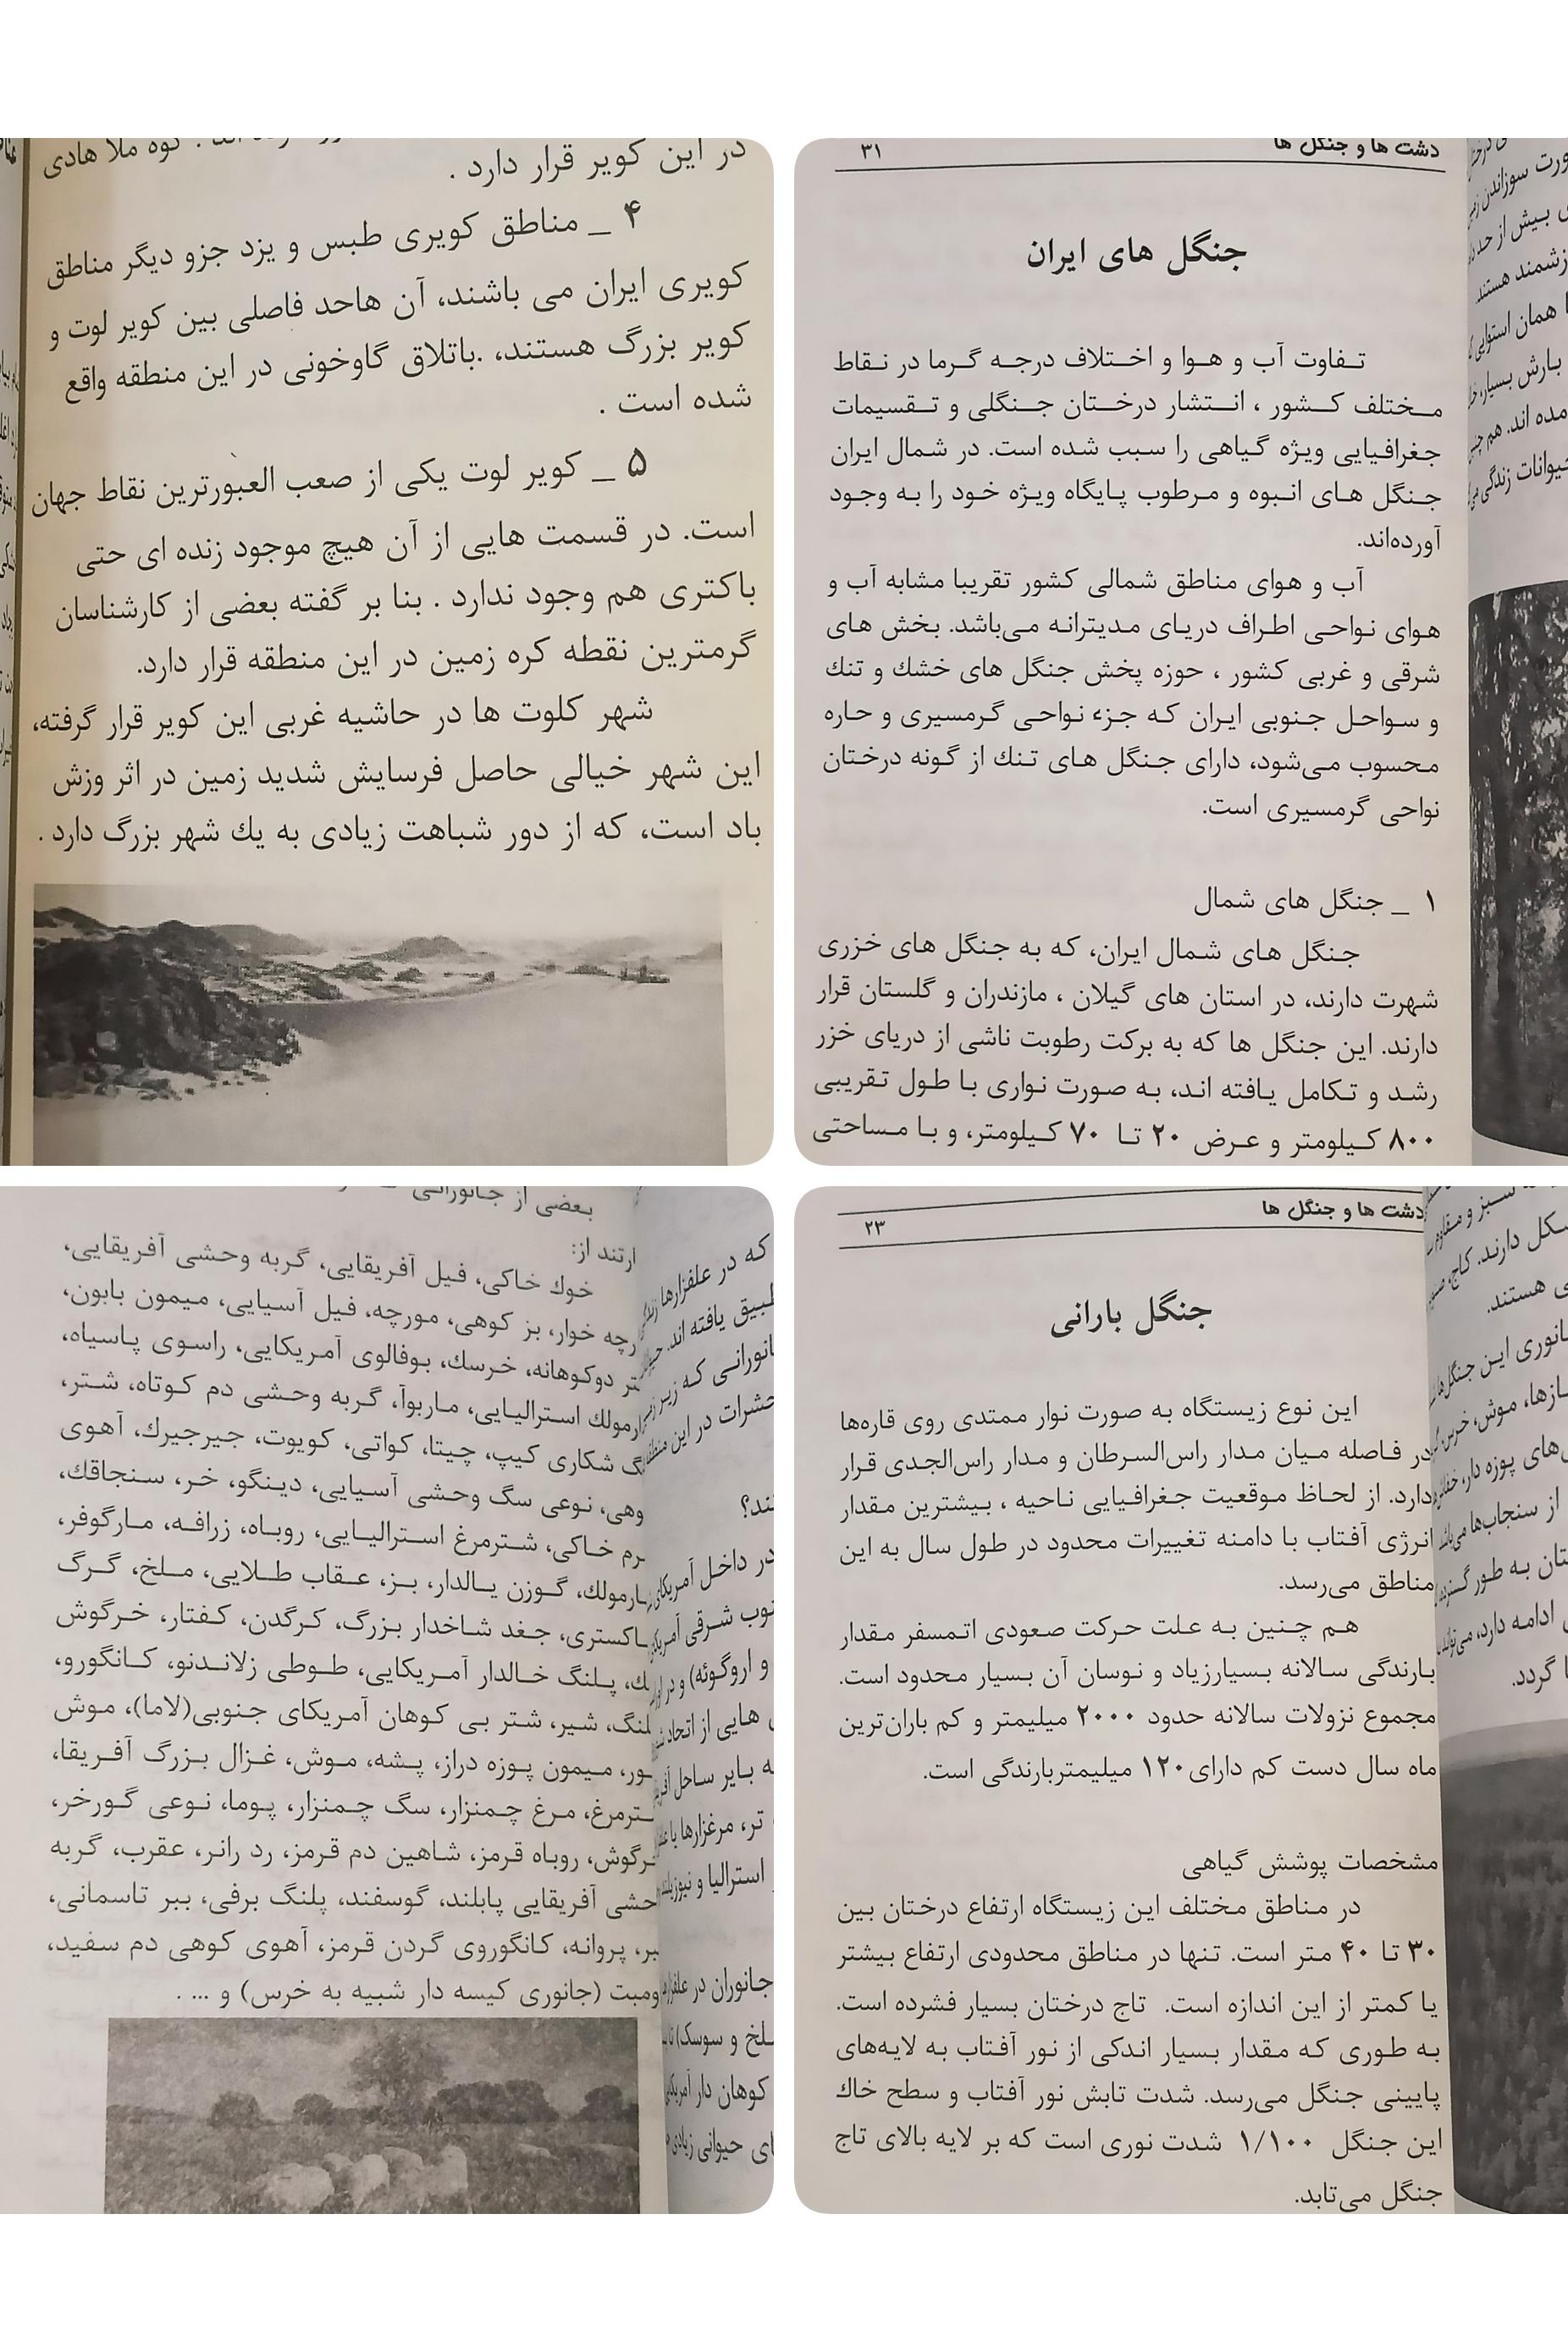 در این کویر قرار دارد .
۴ _ مناطق کویری طبس و یزد جزو دیگر مناطق
کویری ایران می باشند، آن هاحد فاصلی بین کویر لوت و
کویر بزرگ هستند، .باتلاق گاوخونی در این منطقه واقع
شده است .
۵ _ کویر لوت یکی از صعب العبورترین نقاط جهان
است. در قسمت هایی از آن هیچ موجود زنده ای حتی
باکتری هم وجود ندارد . بنا بر گفته بعضی از کارشناسان
گرمترین نقطه کره زمین در این منطقه قرار دارد.
شهر کلوت ها در حاشیه غربی این کویر قرار گرفته،
این شهر خیالی حاصل فرسایش شدید زمین در اثر وزش
باد است، که از دور شباهت زیادی به یك شهر بزرگ دارد .
دشت ها و جنگل ها ۳۱
جنگل های ایران
تفاوت آب و هوا و اختلاف درجه گرما در نقاط
مختلف کشور ، انتشار درختان جنگلی و تقسیمات
جغرافیایی ویژه گیاهی را سبب شده است. در شمال ایران
جنگل های انبوه و مرطوب پایگاه ویژه خود را به وجود
آورده‌اند.
آب و هوای مناطق شمالی کشور تقریبا مشابه آب و
هوای نواحی اطراف دریای مدیترانه می‌باشد. بخش های
شرقی و غربی کشور ، حوزه پخش جنگل های خشك و تنك
و سواحل جنوبی ایران که جزء نواحی گرمسیری و حاره
محسوب می‌شود، دارای جنگل های تنك از گونه درختان
نواحی گرمسیری است.
۱ _ جنگل های شمال
جنگل های شمال ایران، که به جنگل های خزری
شهرت دارند، در استان های گیلان ، مازندران و گلستان قرار
دارند. این جنگل ها که به برکت رطوبت ناشی از دریای خزر
رشد و تکامل یافته اند، به صورت نواری با طول تقریبی
۸۰۰ کیلومتر و عرض ۲۰ تا ۷۰ کیلومتر، و با مساحتی
بعضی از جانورانی
ارتند از:
خوك خاکی، فیل آفریقایی، گربه وحشی آفریقایی،
رچه خوار، بز کوهی، مورچه، فیل آسیایی، میمون بابون،
تر دوکوهانه، خرسك، بوفالوی آمریکایی، راسوی پاسیاه،
ارمولك استرالیایی، ماربوآ، گربه وحشی دم کوتاه، شتر،
گ شکاری کیپ، چیتا، کواتی، کویوت، جیرجیرك، آهوی
وهی، نوعی سگ وحشی آسیایی، دینگو، خر، سنجاقك،
رم خاکی، شترمرغ استرالیایی، روباه، زرافه، مارگوفر،
ارمولك، گوزن یالدار، بز، عقاب طلایی، ملخ، گرگ
اکستری، جغد شاخدار بزرگ، کرگدن، کفتار، خرگوش
ك، پلنگ خالدار آمریکایی، طوطی زلاندنو، کانگورو،
لنگ، شیر، شتر بی کوهان آمریکای جنوبی(لاما)، موش
ور، میمون پوزه دراز، پشه، موش، غزال بزرگ آفریقا،
ترمرغ، مرغ چمنزار، سگ چمنزار، پوما، نوعی گورخر،
رگوش، روباه قرمز، شاهین دم قرمز، رد رانر، عقرب، گربه
حشی آفریقایی پابلند، گوسفند، پلنگ برفی، ببر تاسمانی،
بر، پروانه، کانگوروی گردن قرمز، آهوی کوهی دم سفید،
ومبت (جانوری کیسه دار شبیه به خرس) و ... .
دشت ها و جنگل ها ۲۳
جنگل بارانی
این نوع زیستگاه به صورت نوار ممتدی روی قاره‌ها
در فاصله میان مدار راس‌السرطان و مدار راس‌الجدی قرار
دارد. از لحاظ موقعیت جغرافیایی ناحیه ، بیشترین مقدار
انرژی آفتاب با دامنه تغییرات محدود در طول سال به این
مناطق می‌رسد.
هم چنین به علت حرکت صعودی اتمسفر مقدار
بارندگی سالانه بسیارزیاد و نوسان آن بسیار محدود است.
مجموع نزولات سالانه حدود ۲۰۰۰ میلیمتر و کم باران‌ترین
ماه سال دست کم دارای۱۲۰ میلیمتربارندگی است.
مشخصات پوشش گیاهی
در مناطق مختلف این زیستگاه ارتفاع درختان بین
۳۰ تا ۴۰ متر است. تنها در مناطق محدودی ارتفاع بیشتر
یا کمتر از این اندازه است. تاج درختان بسیار فشرده است.
به طوری که مقدار بسیار اندکی از نور آفتاب به لایه‌های
پایینی جنگل می‌رسد. شدت تابش نور آفتاب و سطح خاك
این جنگل ۱/۱۰۰ شدت نوری است که بر لایه بالای تاج
جنگل می‌تابد.